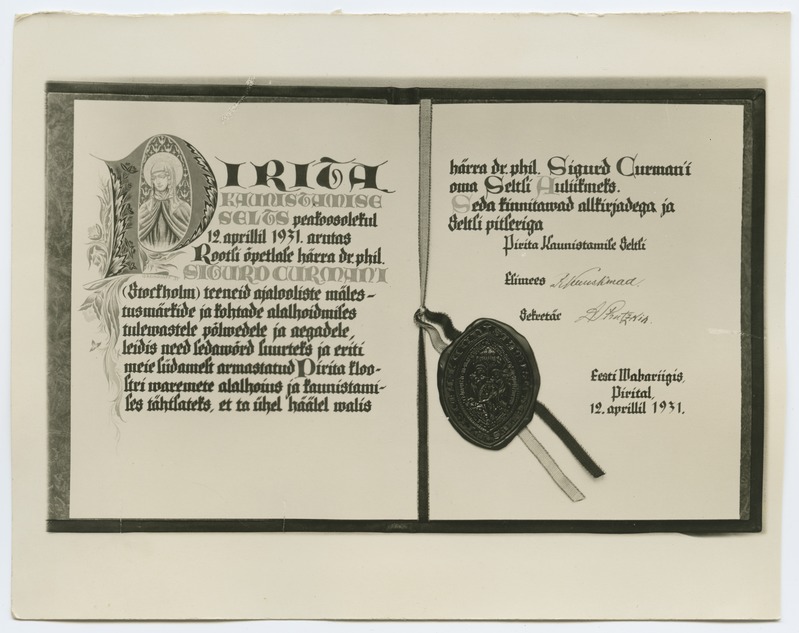 PIRITA
KAUNISTAMISE
SELTS peakoosolekul
12. aprillil 1931. arutas
Rootsi õpetlase härra dr. phil.
SIGURD CURMAN'I
(Stockholm) teeneid ajalooliste mäles-
tusmärkide ja kohtade alalhoidmises
tulewastele põlwedele ja aegadele,
leidis need sedawõrd suurteks ja eriti
meie südamest armastatud Pirita kloo-
stri waremete alalhoius ja kaunistami-
ses tähtsateks, et ta ühel häälel walis
härra dr. phil. Sigurd Curman'i
oma Seltsi Auliikmeks.
Seda kinnitawad allkirjadega ja
Seltsi pitseriga
Pirita Kaunistamise Seltsi
Esimees
Sekretär
Eesti Wabariigis,
Pirital,
12. aprillil 1931.